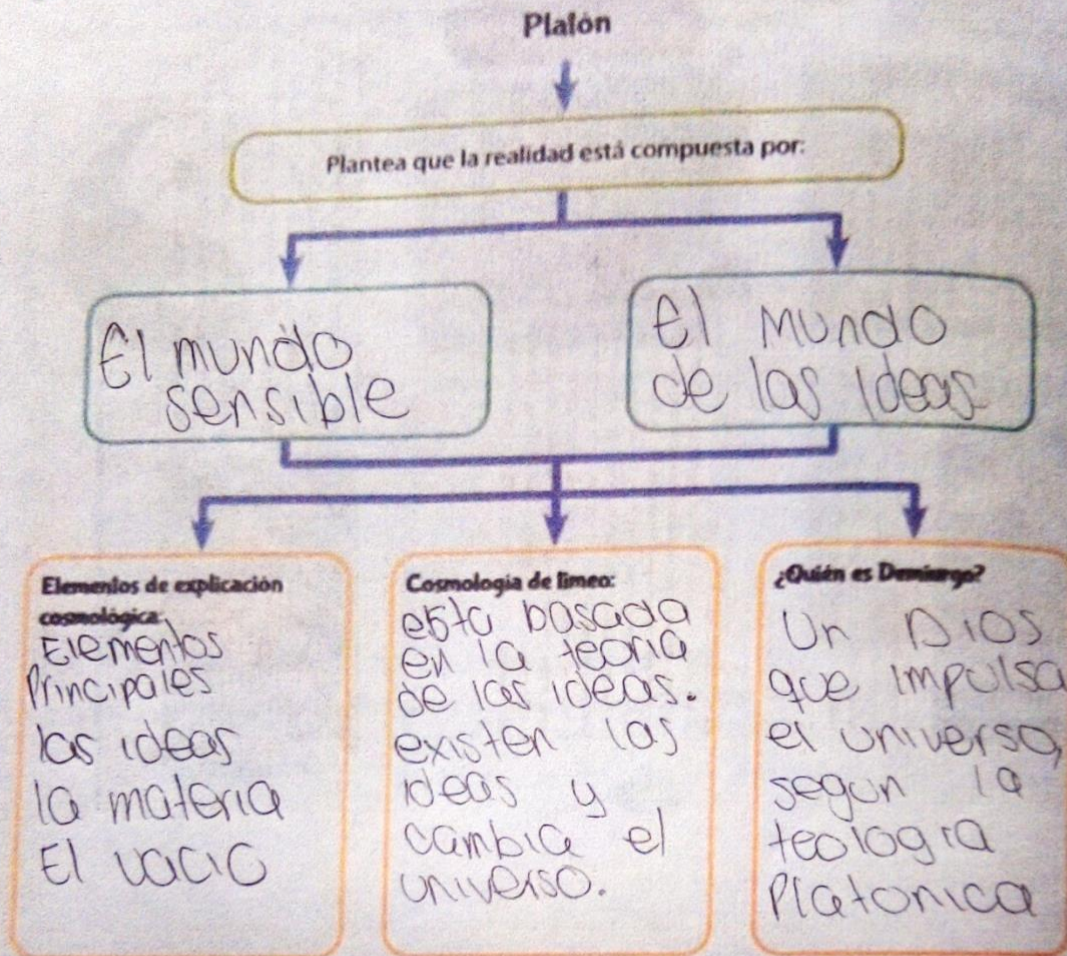 Platón
Plantea que la realidad está compuesta por:
El mundo
sensible
El mundo
de las ideas
Elementos de explicación
cosmológica:
Elementos
Principales
las ideas
la materia
El vacio
Cosmología de Timeo:
esta basada
en la teoria
de las ideas.
existen las
ideas y
cambia el
universo.
¿Quién es Demiurgo?
Un Dios
que impulsa
el universo,
segun la
teologia
Platonica